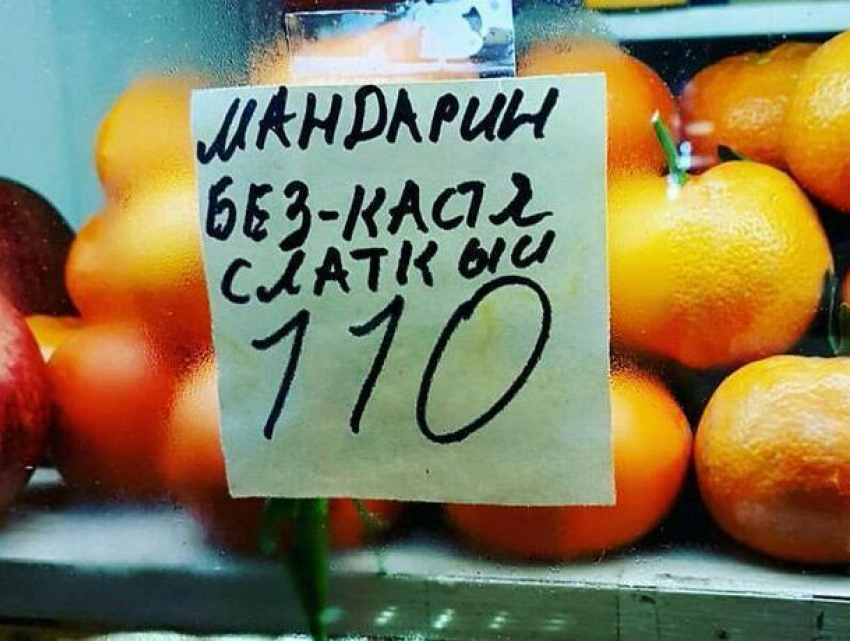 МАНДАРИН
БЕЗ-КАСТЯ
СЛАТКЫЙ
110